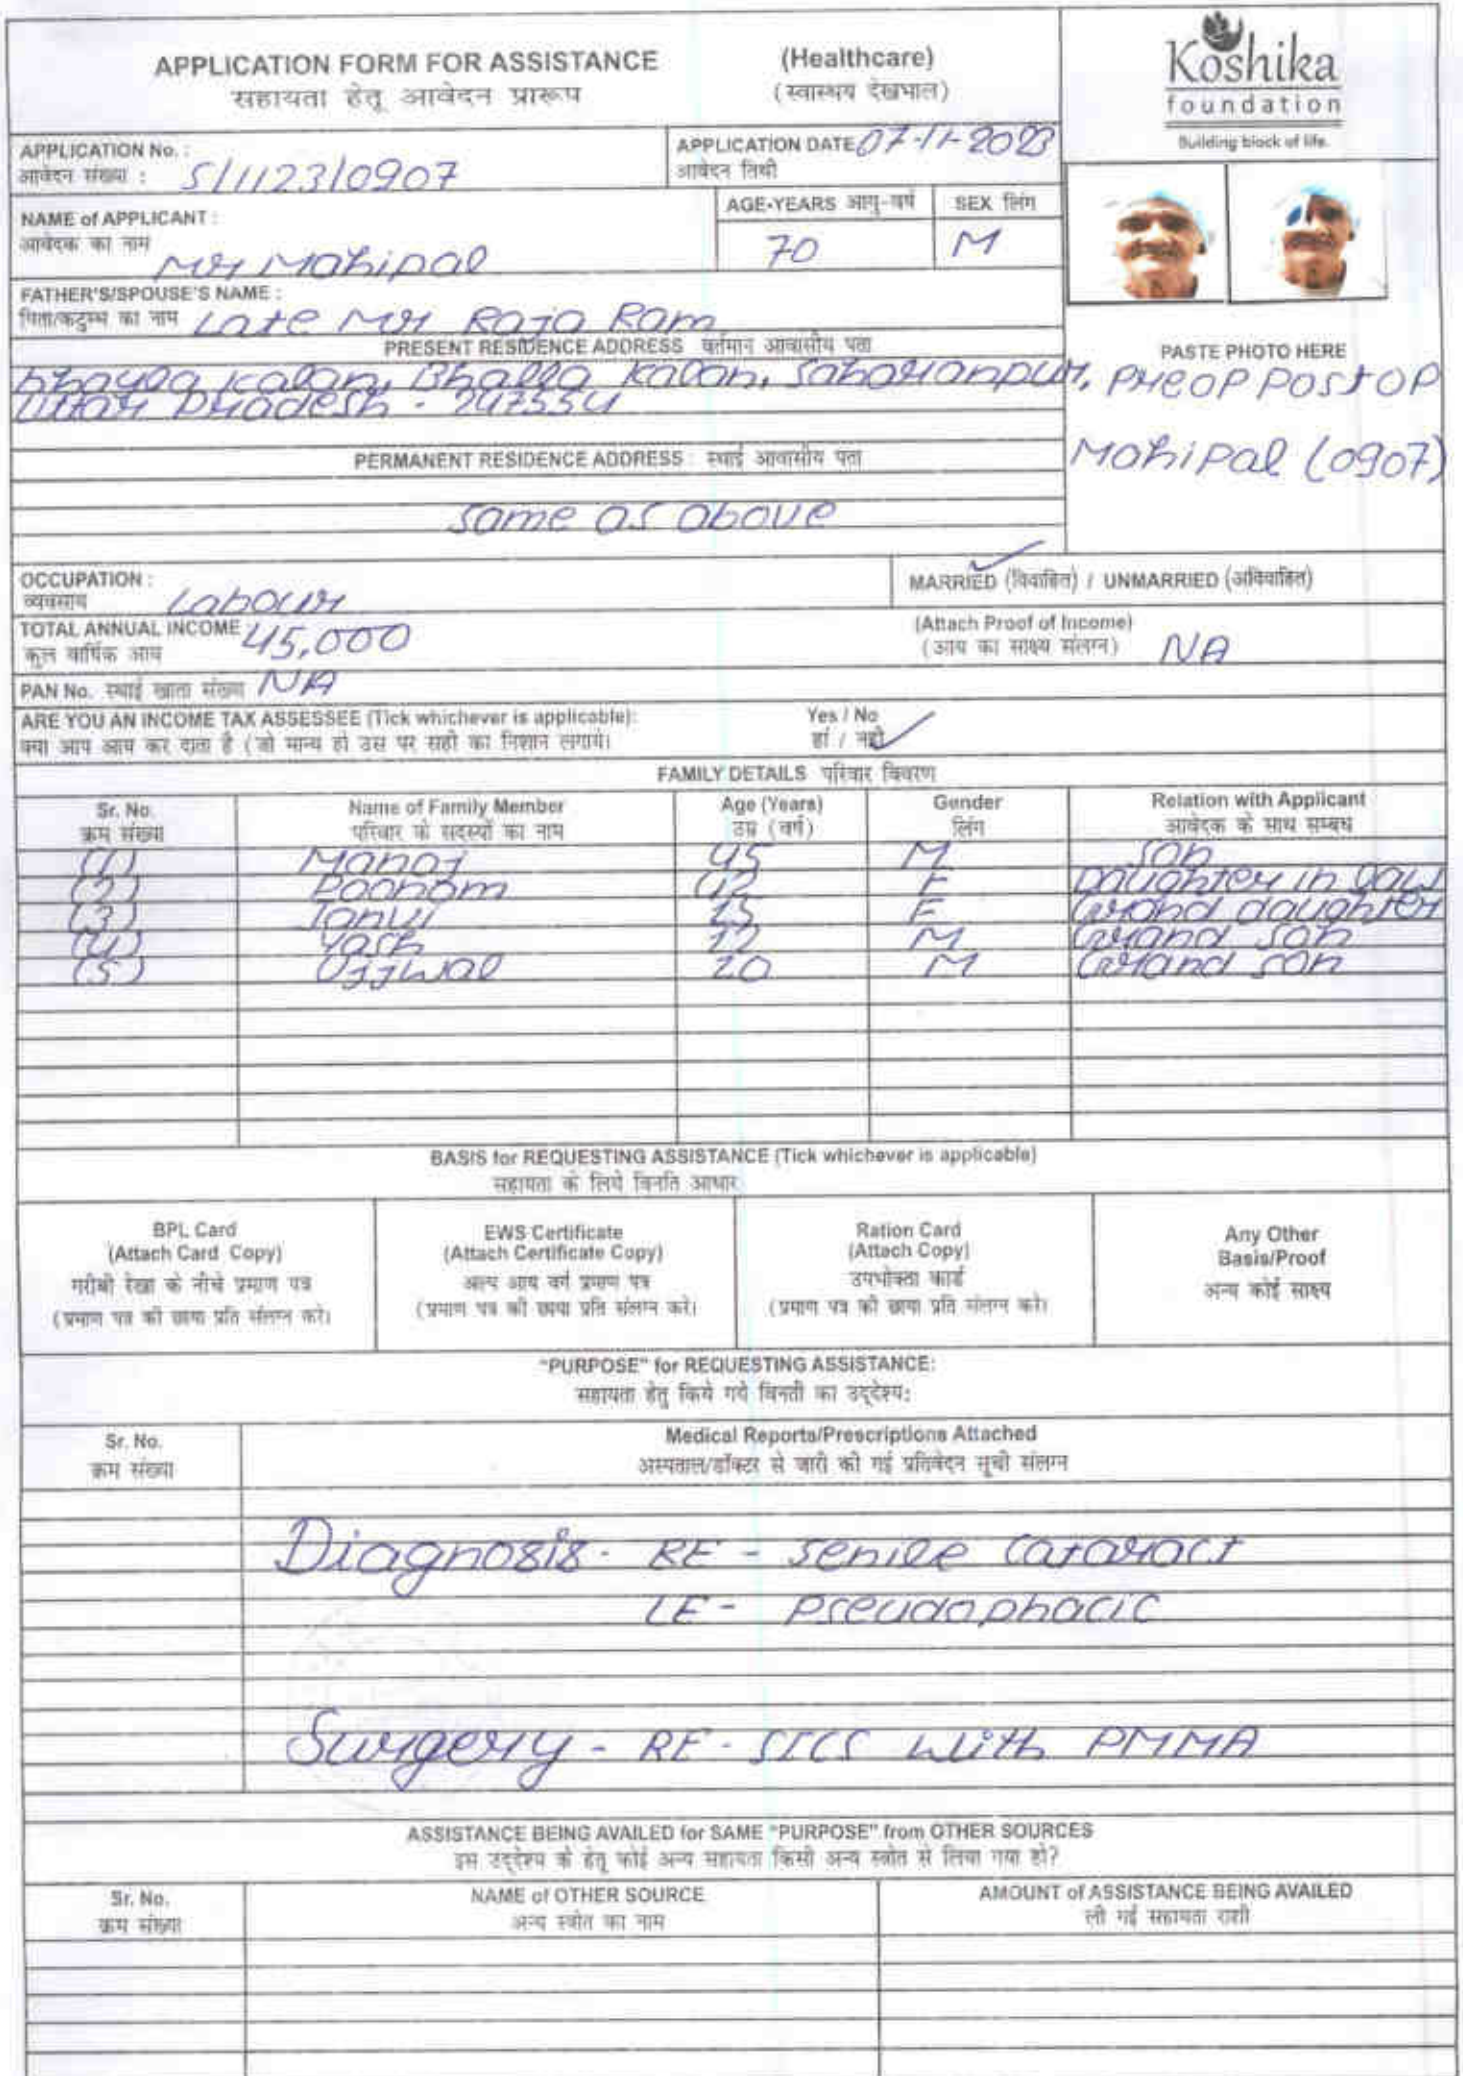 APPLICATION FORM FOR ASSISTANCE (Healthcare)
सहायता हेतू आवेदन प्रारूप (स्वास्थय देखभाल)
Koshika
foundation
Building block of life.
APPLICATION No. : S/1123/0907
आवेदन संख्या :
APPLICATION DATE 07-11-2023
आवेदन तिथी
NAME of APPLICANT :
आवेदक का नाम Mr Mahipal
AGE-YEARS आयु-वर्ष 70
SEX लिंग M
FATHER'S/SPOUSE'S NAME :
पिता/कटुम्ब का नाम Late Mr Raja Ram
PRESENT RESIDENCE ADDRESS वर्तमान आवासीय पता
bhayla Kalan, Bhalla Kalan, Saharanpur,
Uttar Pradesh - 247554
PASTE PHOTO HERE
Preop Postop
Mahipal (0907)
PERMANENT RESIDENCE ADDRESS : स्थाई आवासीय पता
same as above
OCCUPATION :
व्यवसाय Labour
MARRIED (विवाहित) / UNMARRIED (अविवाहित)
TOTAL ANNUAL INCOME 45,000
कुल वार्षिक आय
(Attach Proof of Income)
(आय का साक्ष्य संलग्न) NA
PAN No. स्थाई खाता संख्या NA
ARE YOU AN INCOME TAX ASSESSEE (Tick whichever is applicable): Yes / No
क्या आप आय कर दाता है (जो मान्य हो उस पर सही का निशान लगाये। हां / नहीं
FAMILY DETAILS परिवार विवरण
Sr. No. Name of Family Member Age (Years) Gender Relation with Applicant
क्रम संख्या परिवार के सदस्यों का नाम उम्र (वर्ष) लिंग आवेदक के साथ सम्बंध
(1) Manoj 45 M Son
(2) Poonam 42 F Daughter in law
(3) Tanvi F Grand daughter
(4) Yash M Grand son
(5) Ujjwal 20 M Grand son
BASIS for REQUESTING ASSISTANCE (Tick whichever is applicable)
सहायता के लिये विनति आधार
BPL Card
(Attach Card Copy)
गरीबी रेखा के नीचे प्रमाण पत्र
(प्रमाण पत्र की छाया प्रति संलग्न करे।
EWS Certificate
(Attach Certificate Copy)
अल्प आय वर्ग प्रमाण पत्र
(प्रमाण पत्र की छाया प्रति संलग्न करे।
Ration Card
(Attach Copy)
उपभोक्ता कार्ड
(प्रमाण पत्र की छाया प्रति संलग्न करे।
Any Other
Basis/Proof
अन्य कोई साक्ष्य
"PURPOSE" for REQUESTING ASSISTANCE:
सहायता हेतु किये गये विनती का उद्देश्य:
Sr. No. Medical Reports/Prescriptions Attached
क्रम संख्या अस्पताल/डॉक्टर से जारी की गई प्रतिवेदन सूची संलग्न
Diagnosis- RE - Senile Cataract
LE - Pseudophacic
Surgery - RE - SICS with PMMA
ASSISTANCE BEING AVAILED for SAME "PURPOSE" from OTHER SOURCES
इस उद्देश्य के हेतू कोई अन्य सहायता किसी अन्य स्त्रोत से लिया गया हो?
Sr. No. NAME of OTHER SOURCE AMOUNT of ASSISTANCE BEING AVAILED
क्रम संख्या अन्य स्त्रोत का नाम ली गई सहायता राशी